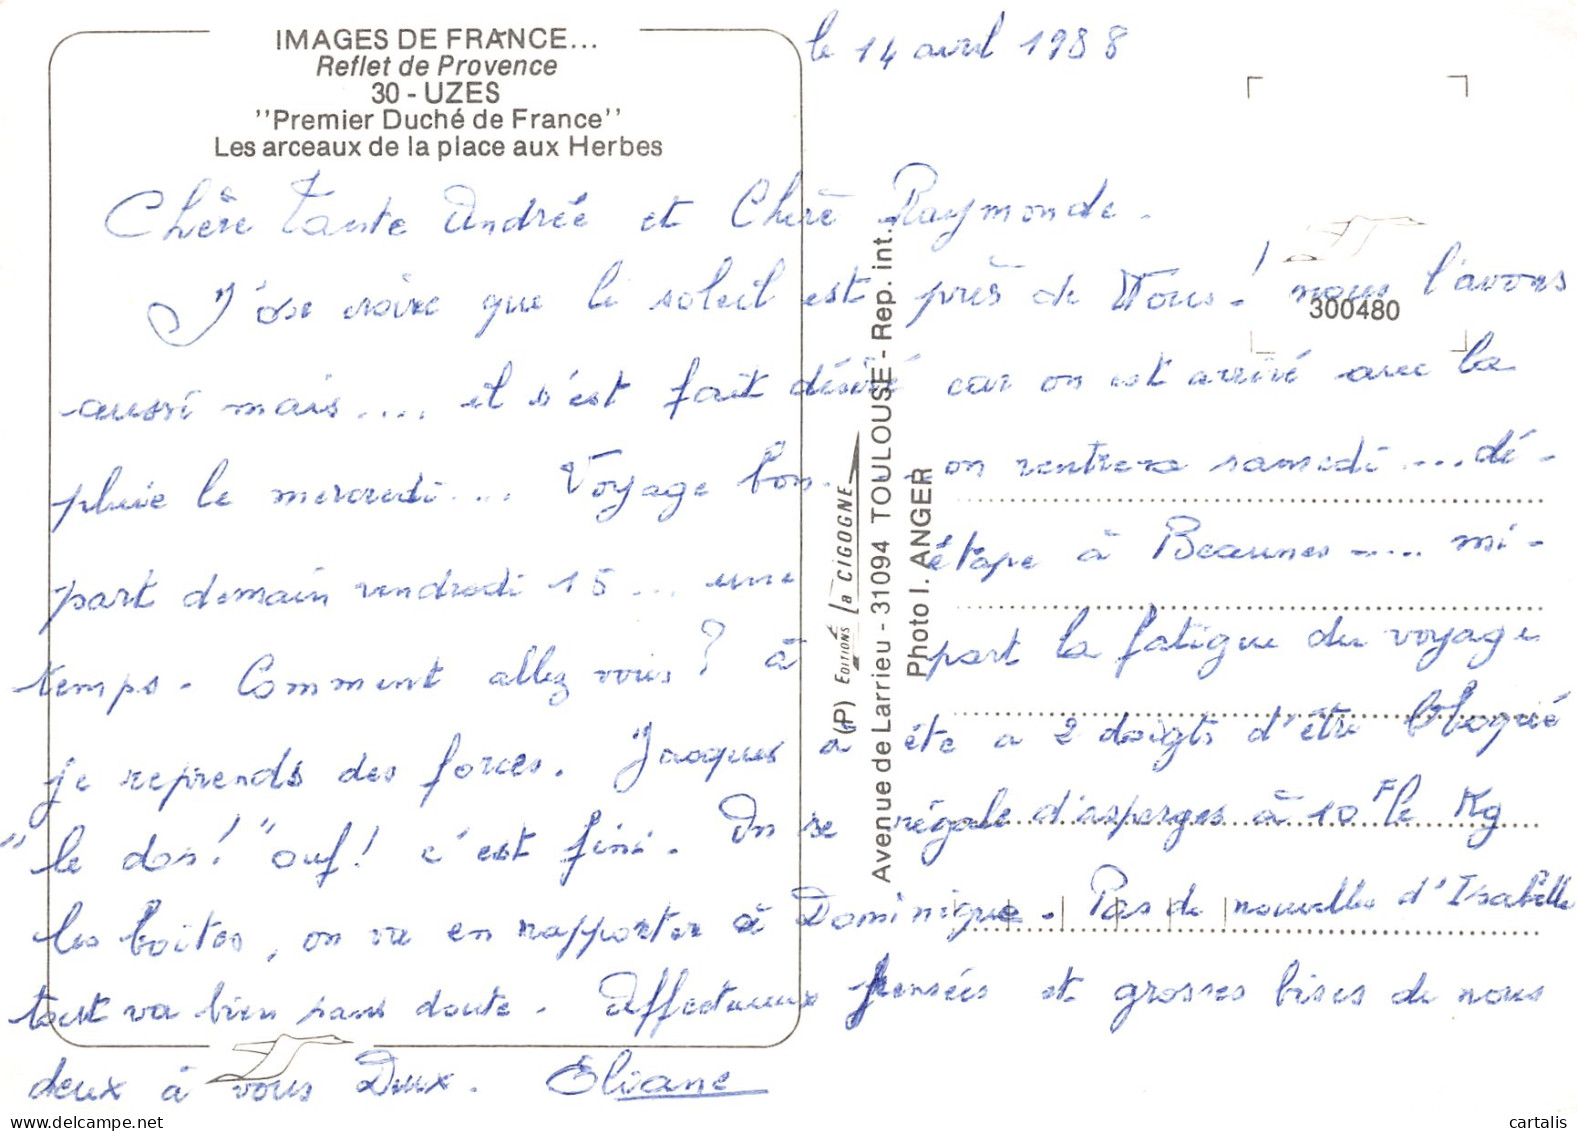 IMAGES DE FRANCE...
Reflet de Provence
30 - UZES
"Premier Duché de France"
Les arceaux de la place aux Herbes
le 14 avril 1988
Chère Tante Andrée et Chère Raymonde.
J'ose croire que le soleil est près de Vous-! nous l'avons
aussi mais.... il s'est fait désiré car on est arrivé avec la
pluie le mercredi.... Voyage bon. on rentrera samedi.... dé-
part demain vendredi 15... une étape à Beaunes..... mi-
temps. Comment allez vous? à part la fatigue du voyage
je reprends des forces. Jacques a été a 2 doigts d'être bloqué
"le dos!" ouf! c'est fini. On se régale d'asperges à 10F le Kg
les boîtes, on va en rapporter à Dominique. Pas de nouvelles d'Isabelle
tout va bien sans doute. Affectueux pensées et grosses bises de nous
deux à vous Deux. Eliane
300480
(P) EDITIONS la CIGOGNE
Avenue de Larrieu - 31094 TOULOUSE - Rep. int.
Photo I. ANGER
www.delcampe.net
cartalis